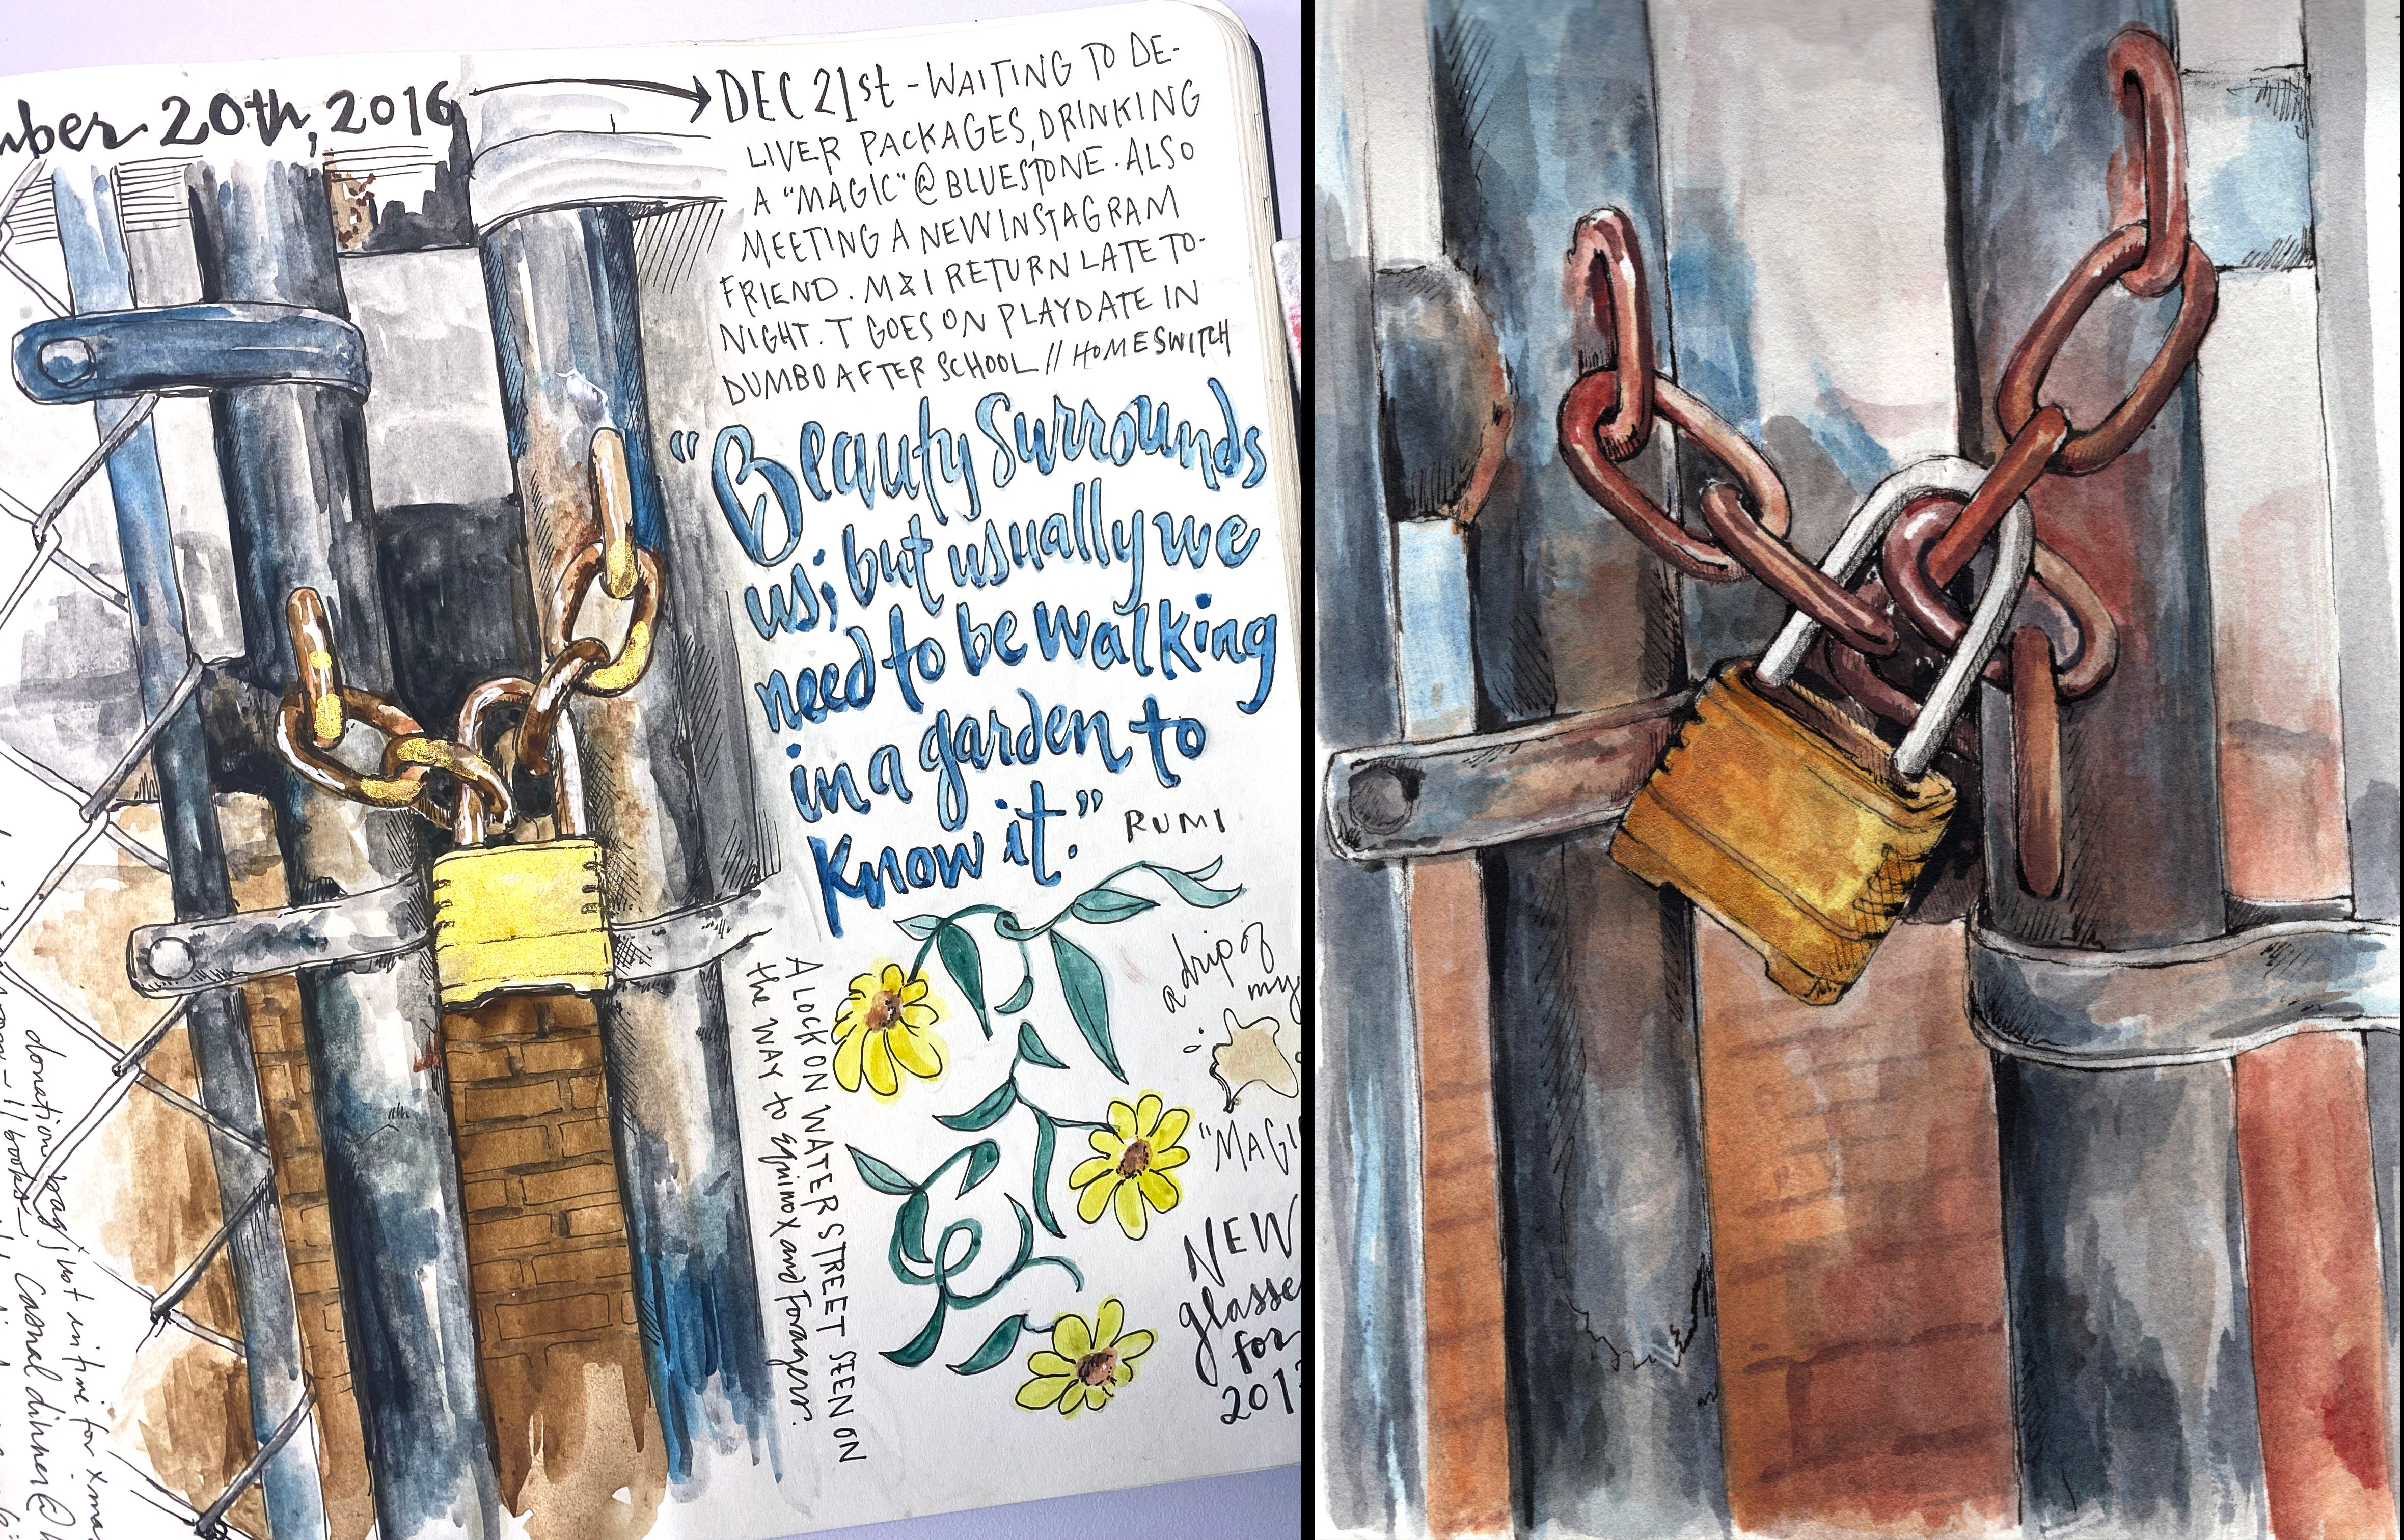 mber 20th, 2016
DEC 21st - WAITING TO DE-
LIVER PACKAGES, DRINKING
A "MAGIC" @ BLUESTONE. ALSO
MEETING A NEW INSTAGRAM
FRIEND. M & I RETURN LATE TO-
NIGHT. T GOES ON PLAYDATE IN
DUMBO AFTER SCHOOL // HOMESWITCH
"Beauty Surrounds
us; but usually we
need to be walking
in a garden to
Know it." RUMI
A LOCK ON WATER STREET SEEN ON
the WAY to Equinox and Foragers.
a drip of
my
"MAGI
NEW
glasse
for
201
donation bags not in time for xmas
Casual dinner @